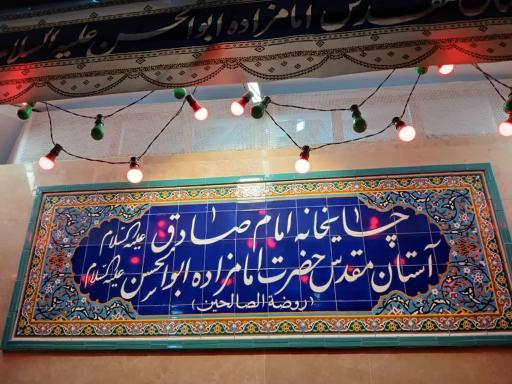 مقدس امامزاده ابوالحسن علیه السلام
چایخانه امام صادق علیه السلام
آستان مقدس حضرت امامزاده ابوالحسن علیه السلام
(روضة الصالحین)